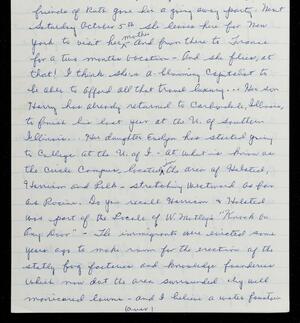 friends of Kate gave her a going away party. Next
Saturday October 5th she leaves here for New
York to visit her mother - And from there to France
for a two months vacation - And she flies, at
that! I think she's a blooming Capitalist to
be able to afford all that trans luxury... Her son
Harry has already returned to Carbondale, Illinois,
to finish his last year at the U. of Southern
Illinois... Her daughter Evelyn has started going
to College at the U. of I - at what is know as
the Circle Campus, located in the area of Halsted,
Harrison and Polk - stretching Westward as far
as Racine. Do you recall Harrison & Halsted
was part of the Locale of W. Motley's "Knock On
Any Door" - The immigrants were evicted some
years ago to make room for the erection of the
stately fog factories and knowledge foundries
which now dot the area surrounded by well
manicured lawns - and I believe a water fountain
(over)